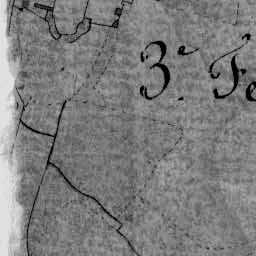 3.e Fe